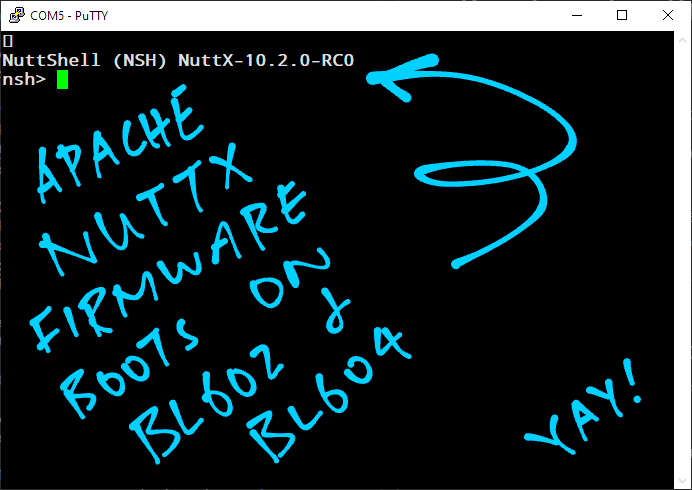 COM5 - PuTTY
[]
NuttShell (NSH) NuttX-10.2.0-RC0
nsh>
APACHE
NUTTX
FIRMWARE
BOOTS ON
BL602 &
BL604
YAY!